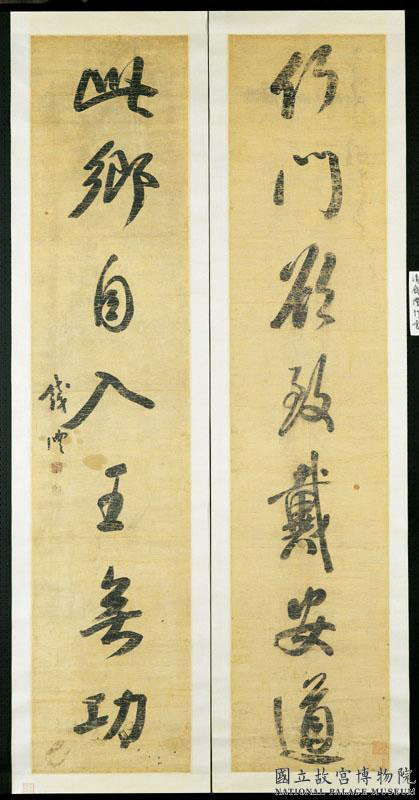 門欲致戴安道
此鄉自入王無功
錢灃
國立故宮博物院
NATIONAL PALACE MUSEUM